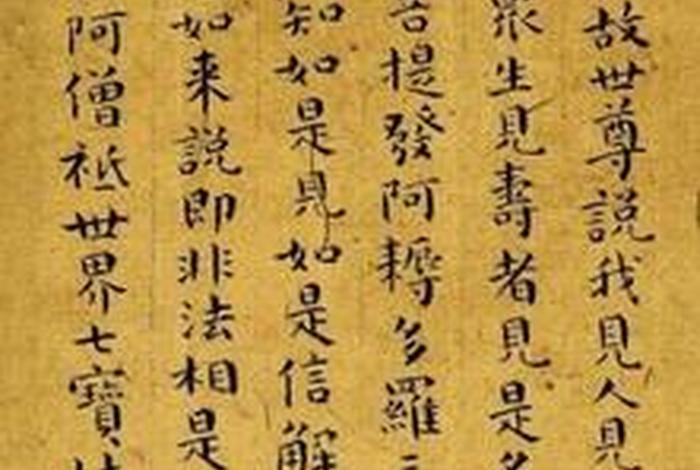 故世尊說我見人見
眾生見壽者見是名
菩提發阿耨多羅三
知如是見如是信解
如来說即非法相是
阿僧祇世界七寶